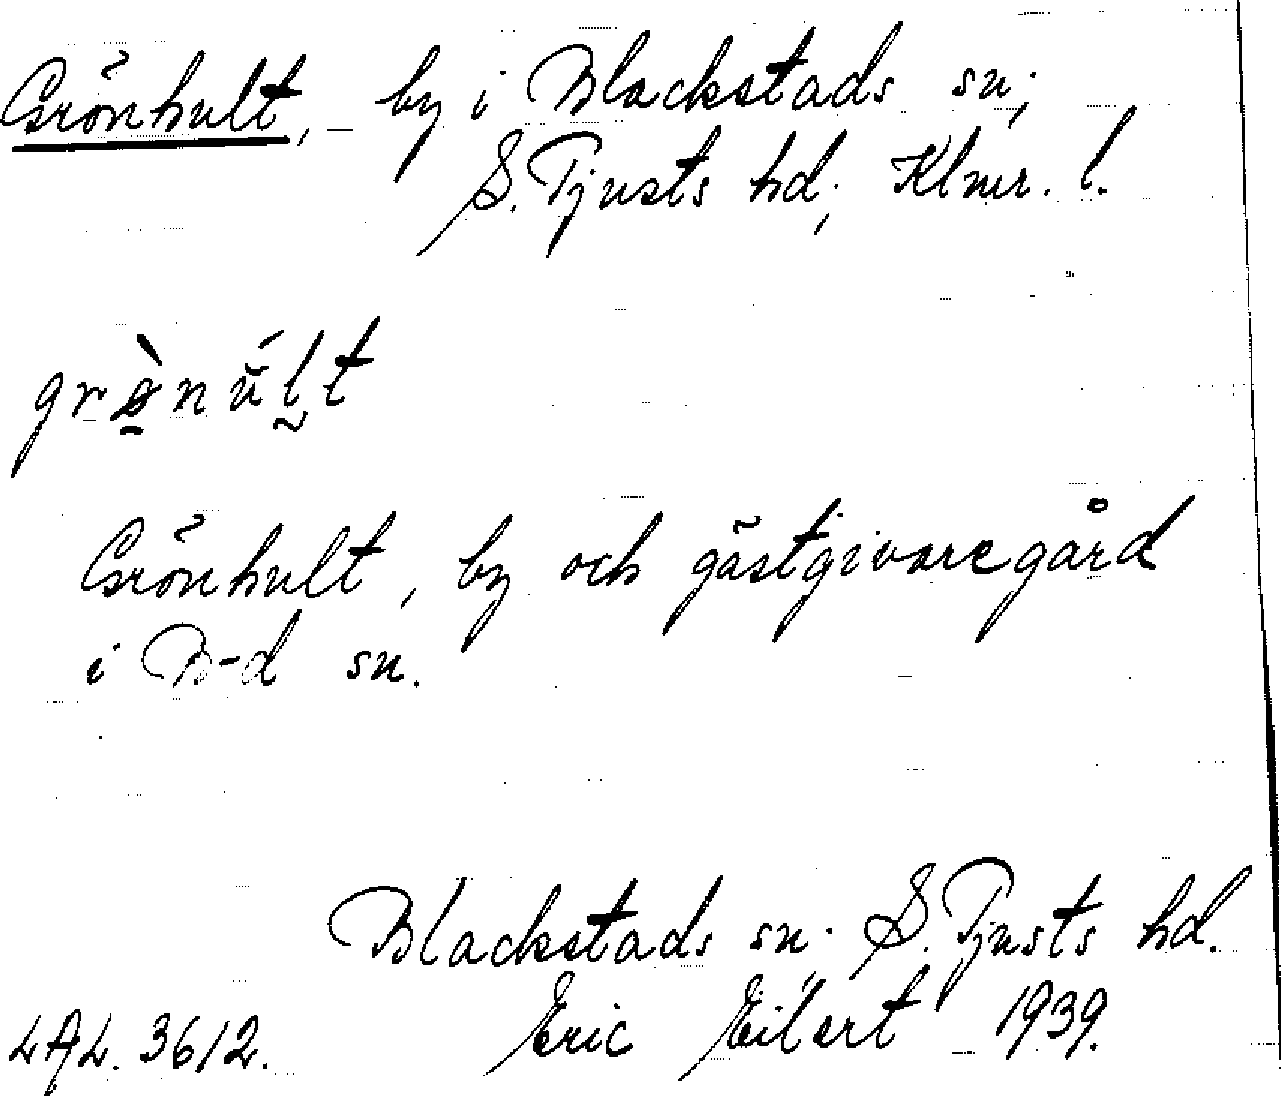 Grönhult, by i Blackstads sn;
S. Tjusts hd; Klmr. l.
Grönhult, by och gästgivaregård
i B-d sn.
Blackstads sn; S. Tjusts hd.
LAL. 3612. Eric Eilert 1939.